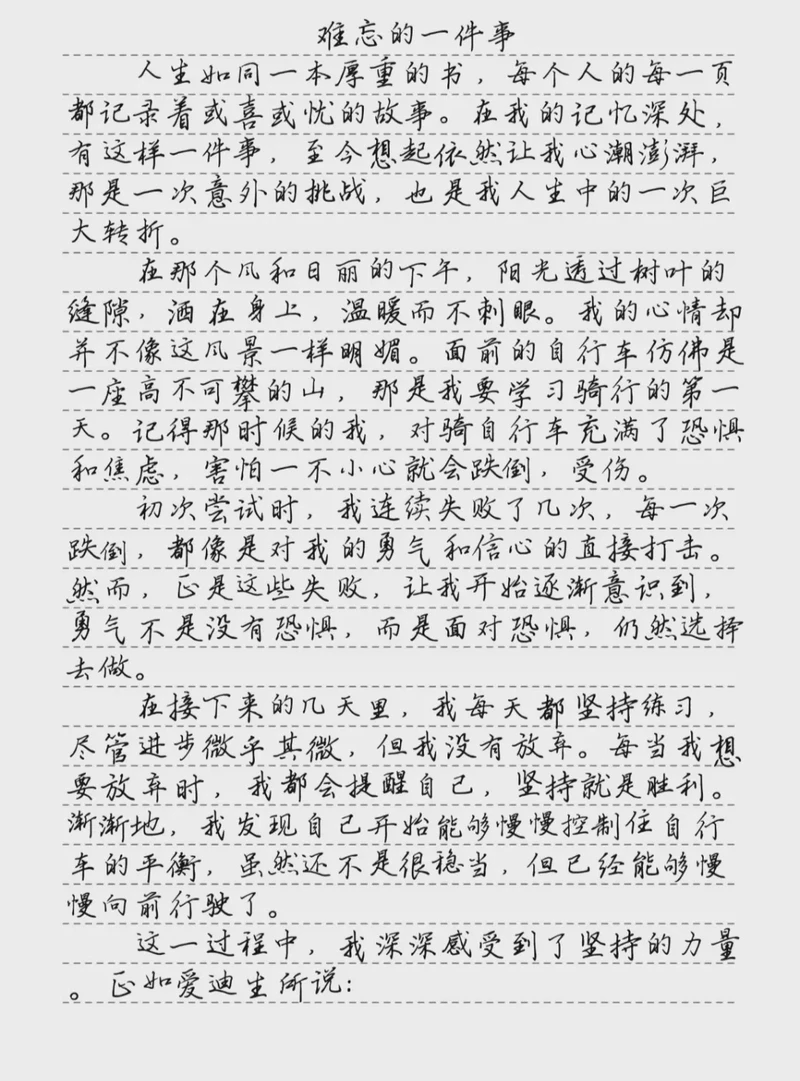 难忘的一件事
人生如同一本厚重的书，每个人的每一页
都记录着或喜或忧的故事。在我的记忆深处，
有这样一件事，至今想起依然让我心潮澎湃，
那是一次意外的挑战，也是我人生中的一次巨
大转折。
在那个风和日丽的下午，阳光透过树叶的
缝隙，洒在身上，温暖而不刺眼。我的心情却
并不像这风景一样明媚。面前的自行车仿佛是
一座高不可攀的山，那是我要学习骑行的第一
天。记得那时候的我，对骑自行车充满了恐惧
和焦虑，害怕一不小心就会跌倒，受伤。
初次尝试时，我连续失败了几次，每一次
跌倒，都像是对我的勇气和信心的直接打击。
然而，正是这些失败，让我开始逐渐意识到，
勇气不是没有恐惧，而是面对恐惧，仍然选择
去做。
在接下来的几天里，我每天都坚持练习，
尽管进步微乎其微，但我没有放弃。每当我想
要放弃时，我都会提醒自己，坚持就是胜利。
渐渐地，我发现自己开始能够慢慢控制住自行
车的平衡，虽然还不是很稳当，但已经能够慢
慢向前行驶了。
这一过程中，我深深感受到了坚持的力量
。正如爱迪生所说：